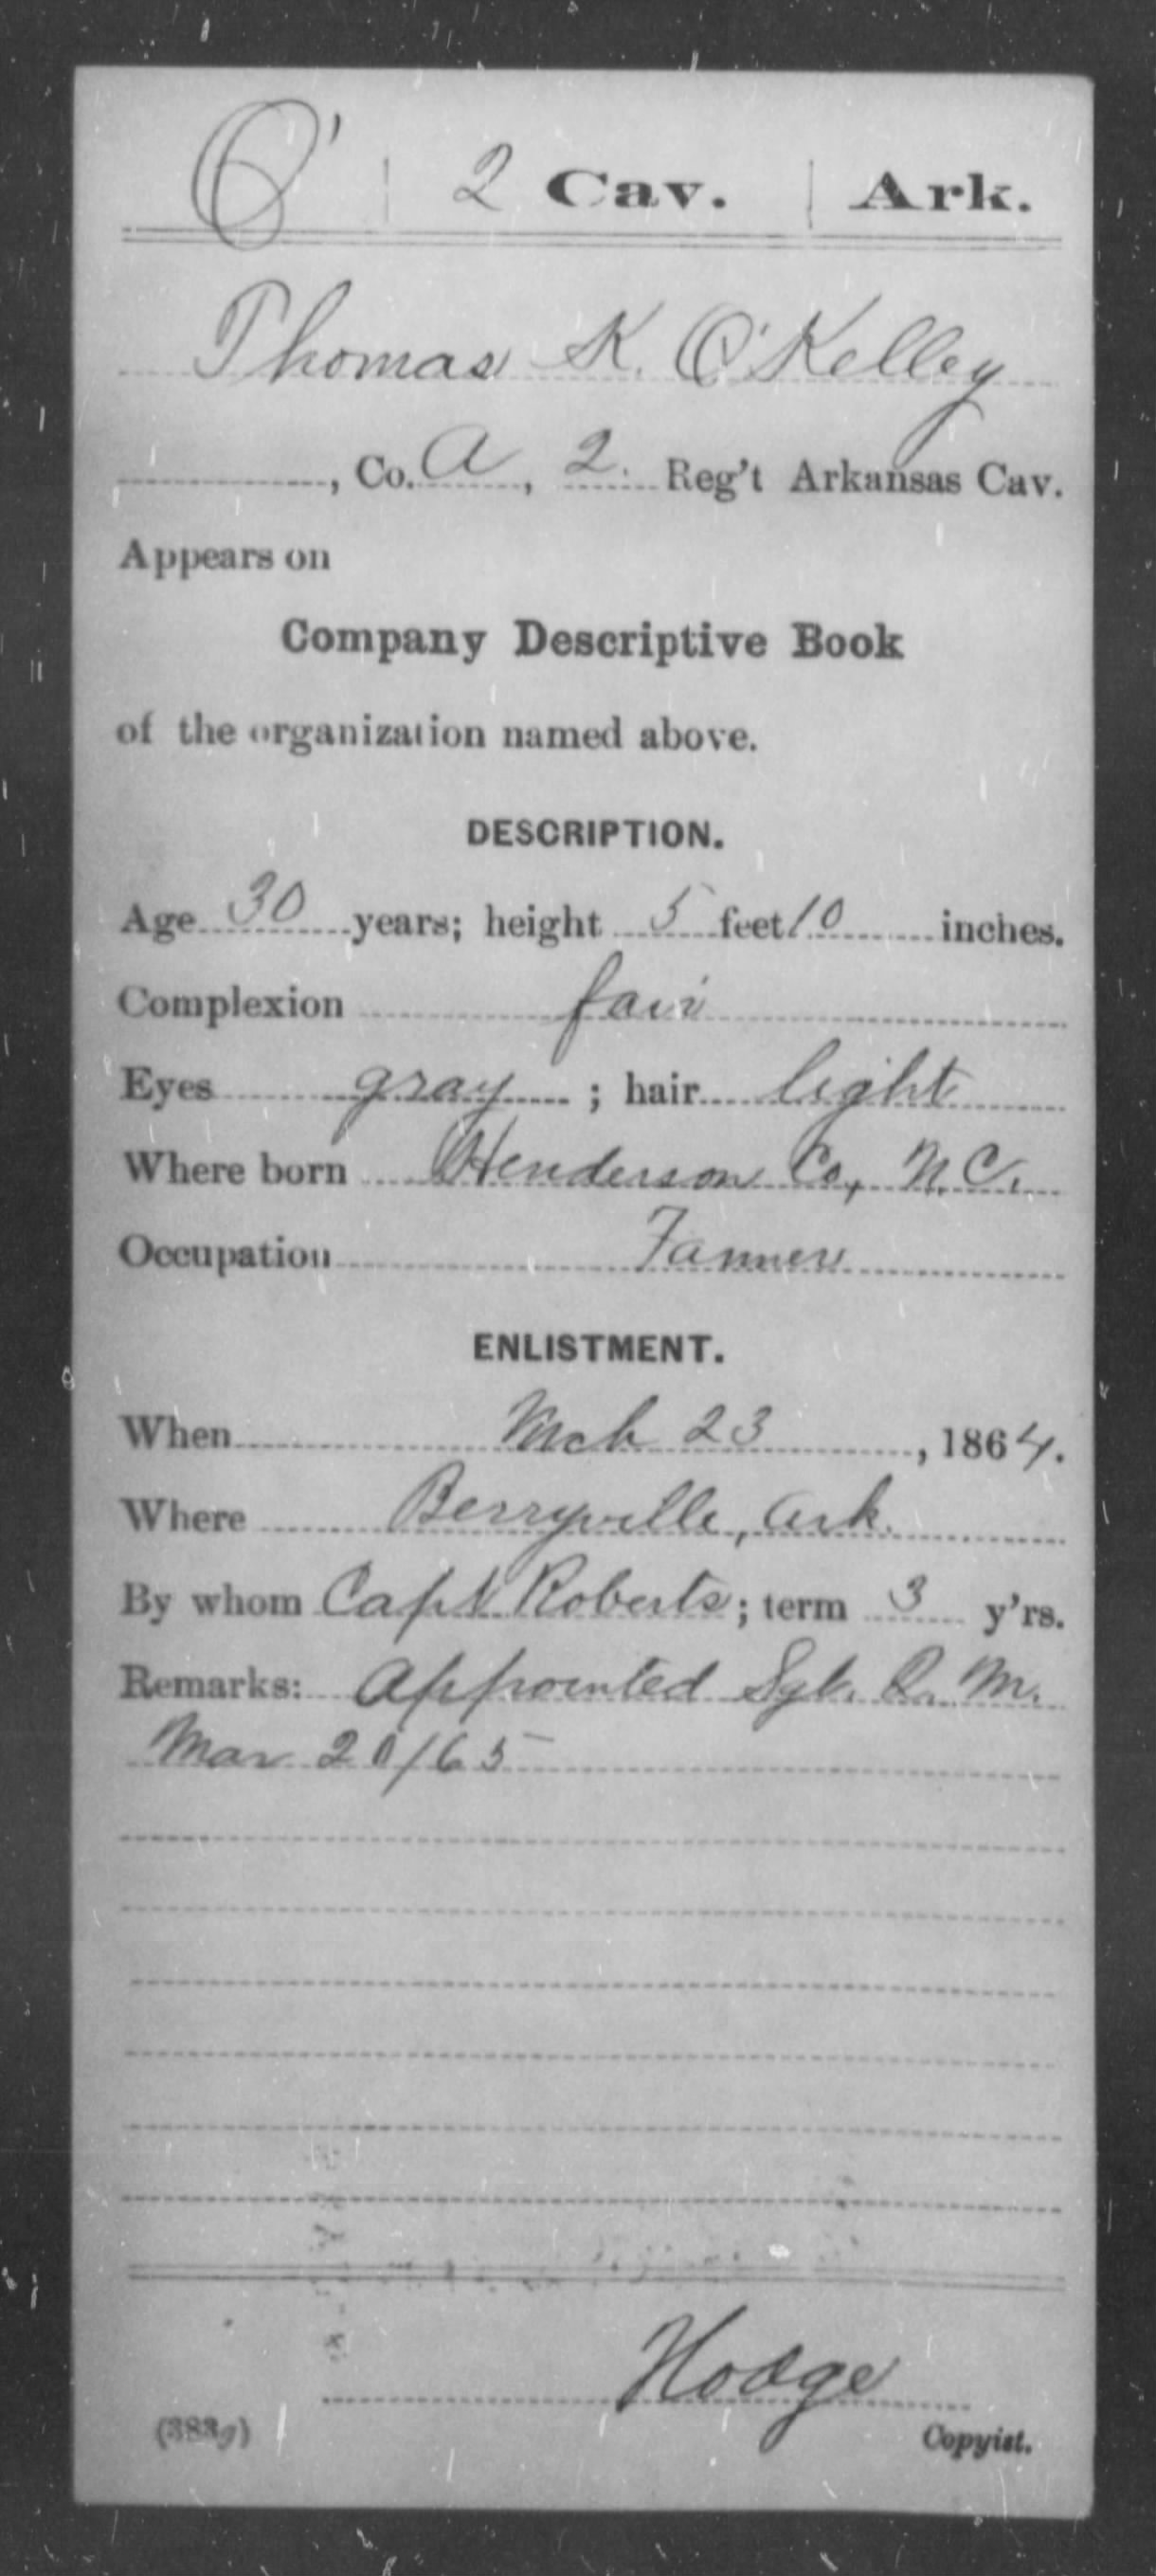 O' | 2 Cav. | Ark.
Thomas K. O'Kelley
, Co. A, 2. Reg't Arkansas Cav.
Appears on
Company Descriptive Book
of the organization named above.
DESCRIPTION.
Age 30 years; height 5 feet 10 inches.
Complexion fair
Eyes gray; hair light
Where born Henderson Co, N.C.
Occupation Farmer
ENLISTMENT.
When Mch 23, 1864.
Where Berryville, Ark.
By whom Capt Roberts; term 3 y'rs.
Remarks: Appointed Sgt. Q. M.
Mar /65
Hodge
(383g) Copyist.